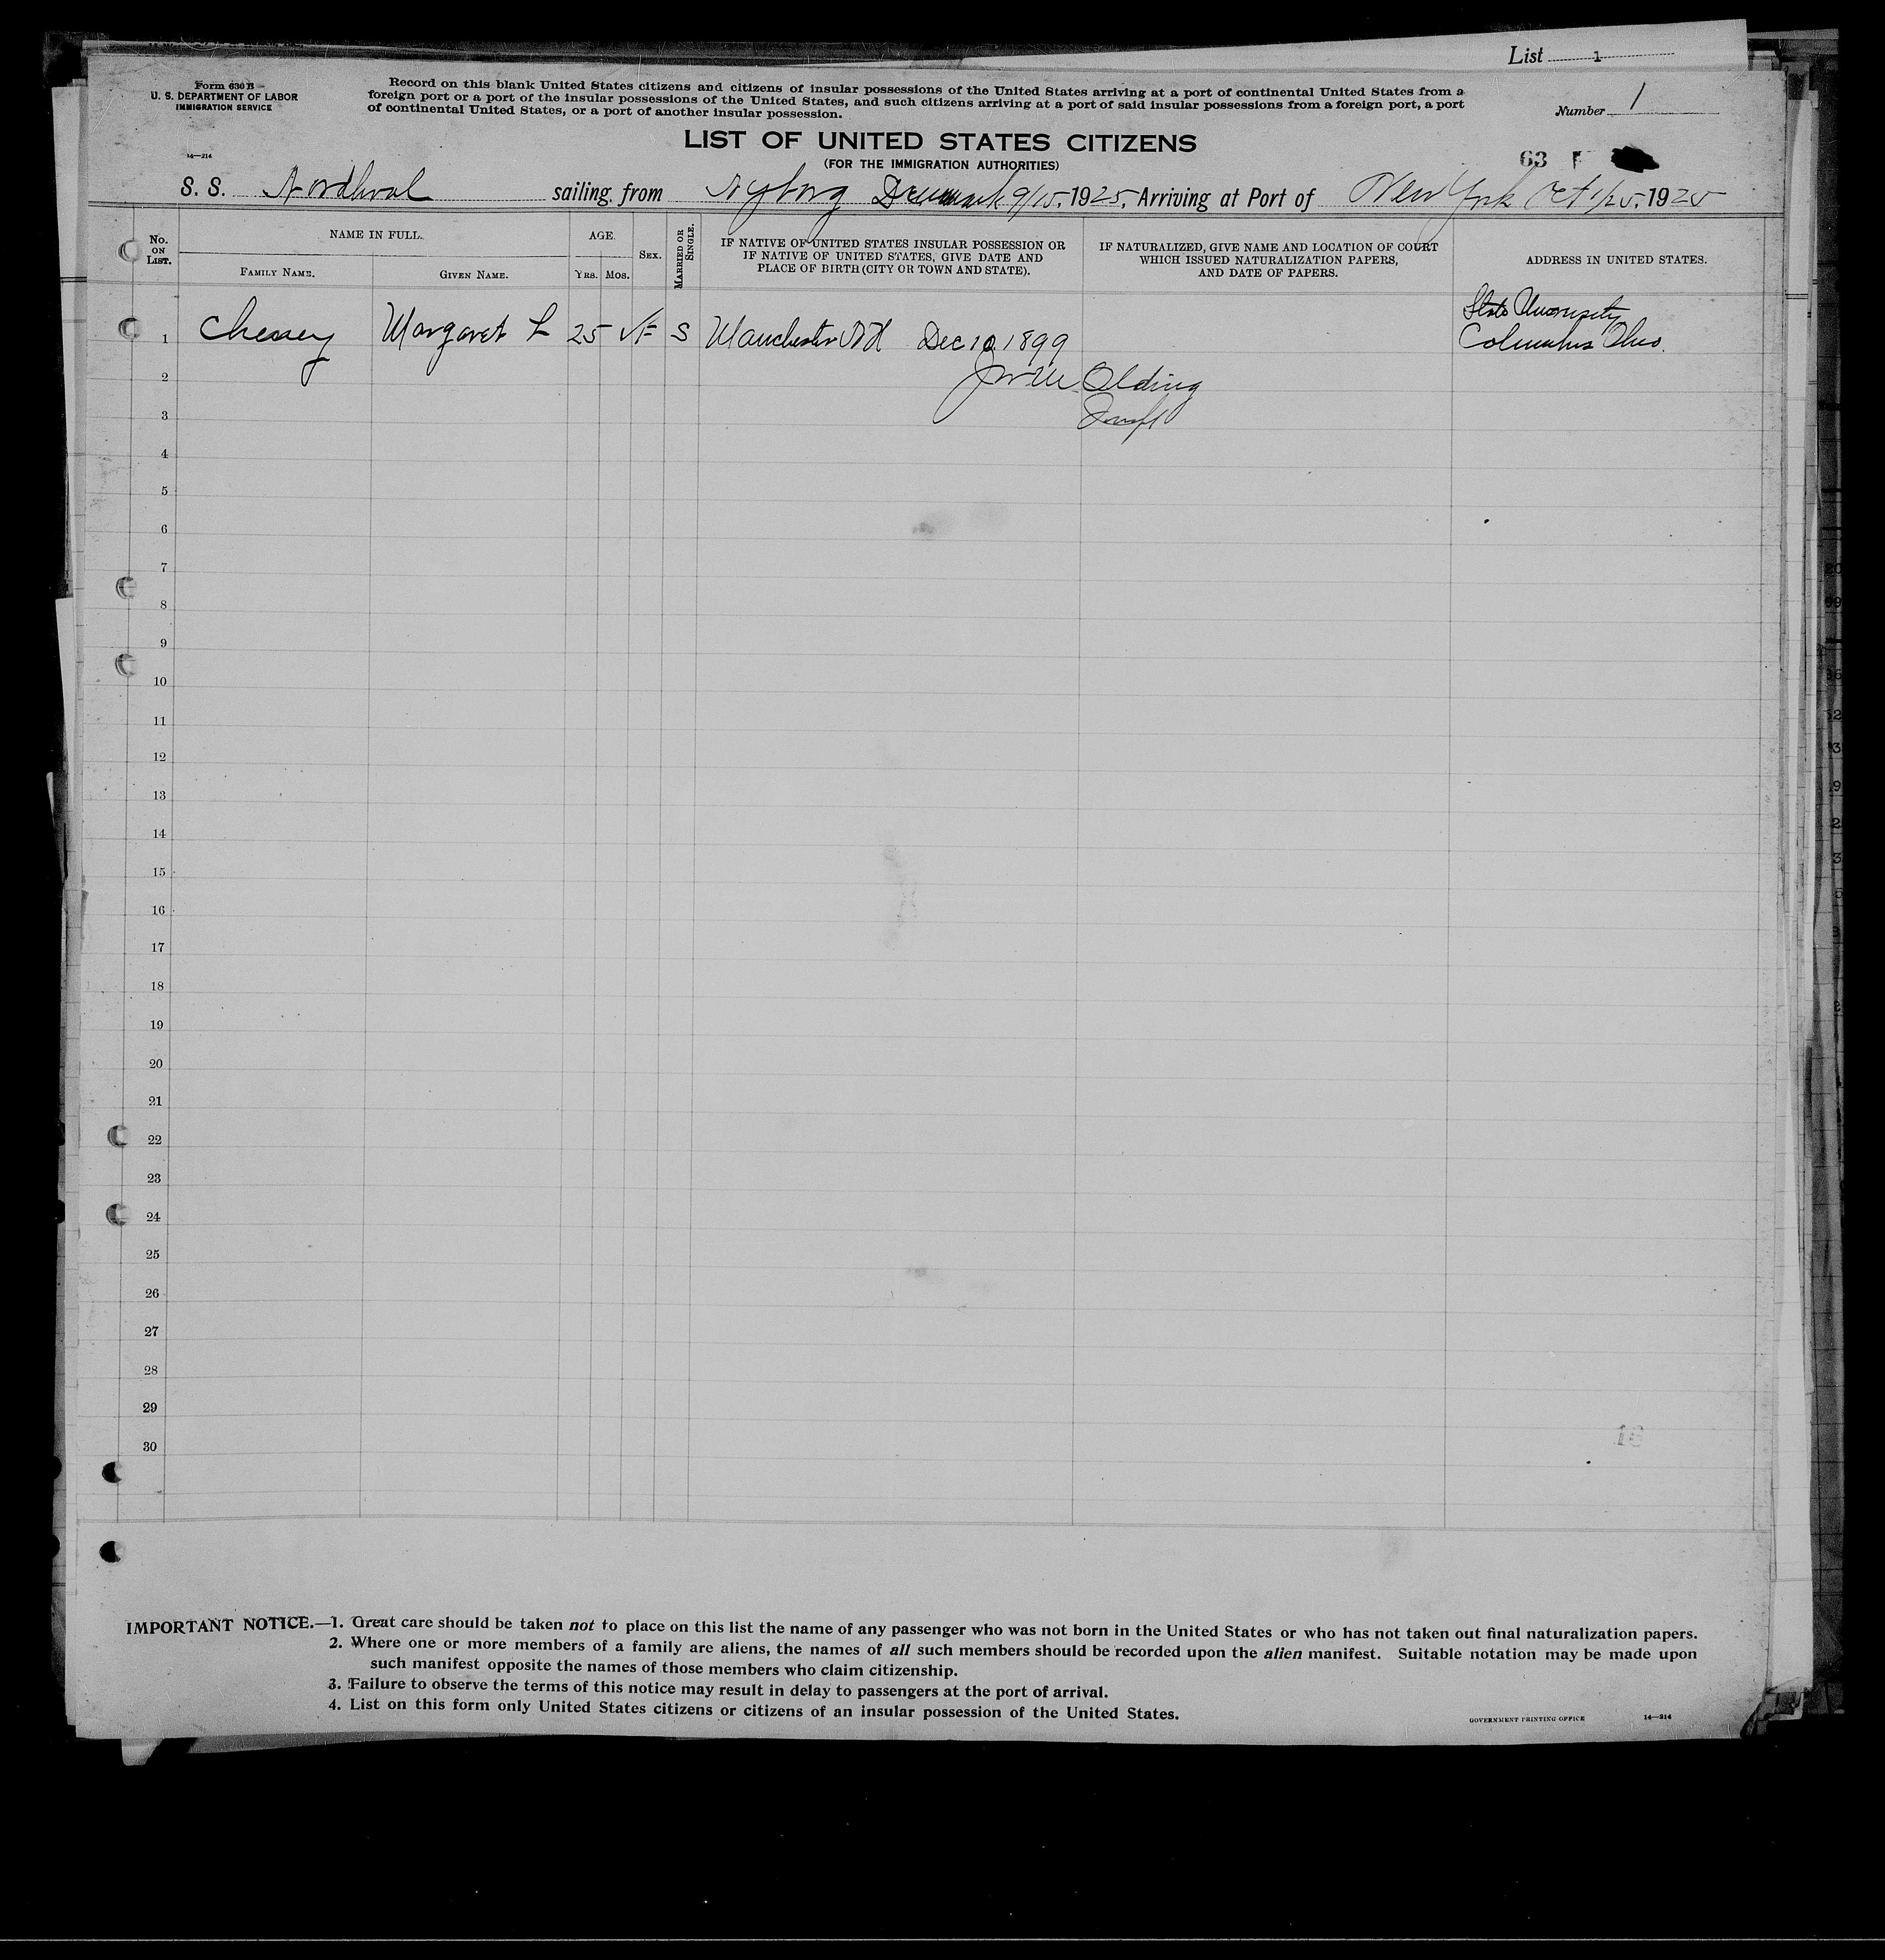 List 1
Form 630 B
U. S. DEPARTMENT OF LABOR
IMMIGRATION SERVICE
14—214
Record on this blank United States citizens and citizens of insular possessions of the United States arriving at a port of continental United States from a
foreign port or a port of the insular possessions of the United States, and such citizens arriving at a port of said insular possessions from a foreign port, a port
of continental United States, or a port of another insular possession.
Number 1
LIST OF UNITED STATES CITIZENS
(FOR THE IMMIGRATION AUTHORITIES)
63
S. S. Nordhval sailing from Nyborg Denmark 9/15, 1925, Arriving at Port of New York Oct 1/25, 1925
No. ON LIST.
NAME IN FULL.
FAMILY NAME.
GIVEN NAME.
AGE.
YRS. MOS.
SEX.
MARRIED OR SINGLE.
IF NATIVE OF UNITED STATES INSULAR POSSESSION OR
IF NATIVE OF UNITED STATES, GIVE DATE AND
PLACE OF BIRTH (CITY OR TOWN AND STATE).
IF NATURALIZED, GIVE NAME AND LOCATION OF COURT
WHICH ISSUED NATURALIZATION PAPERS,
AND DATE OF PAPERS.
ADDRESS IN UNITED STATES.
State University
1 Margaret L 25 F S Manchester Dec 10 1899 Columbus Ohio.
2 Olding
3
4
5
6
7
8
9
10
11
12
13
14
15
16
17
18
19
20
21
22
23
24
25
26
27
28
29
30
IMPORTANT NOTICE.—1. Great care should be taken not to place on this list the name of any passenger who was not born in the United States or who has not taken out final naturalization papers.
2. Where one or more members of a family are aliens, the names of all such members should be recorded upon the alien manifest. Suitable notation may be made upon
such manifest opposite the names of those members who claim citizenship.
3. Failure to observe the terms of this notice may result in delay to passengers at the port of arrival.
4. List on this form only United States citizens or citizens of an insular possession of the United States.
GOVERNMENT PRINTING OFFICE 14—214